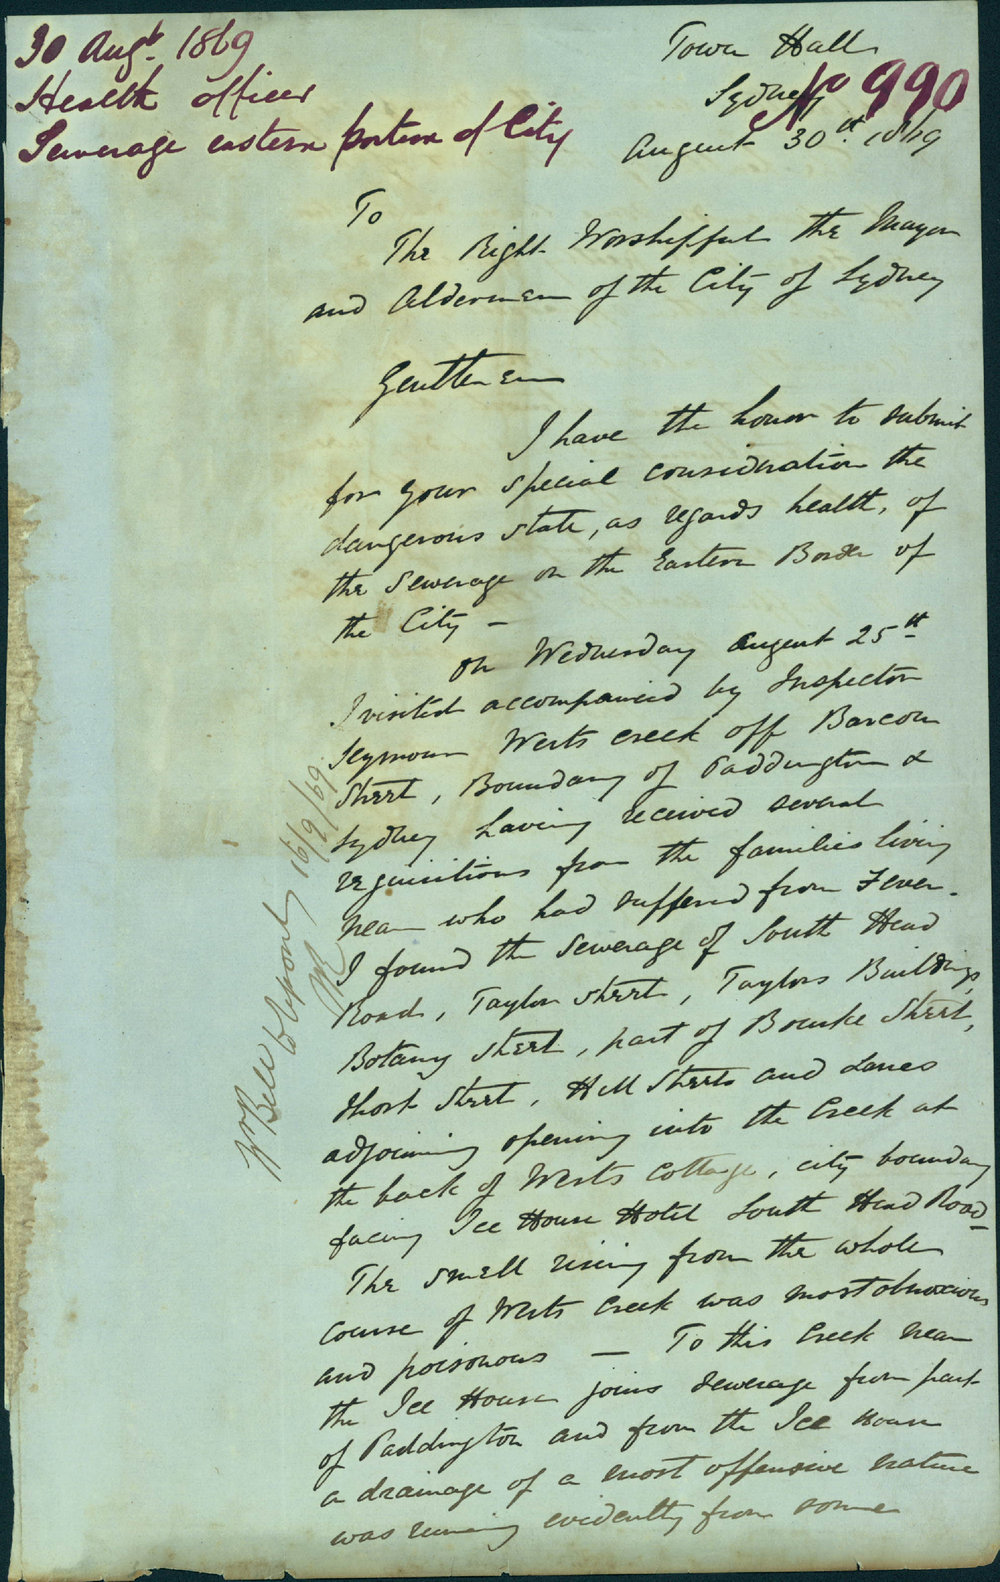 30 Augt. 1869
Health officer
Sewerage eastern portion of City
Town Hall
Sydney
No 990
August 30th. 1869
To
The Right Worshipful the Mayor
and Aldermen of the City of Sydney
Gentlemen
I have the honor to submit
for your special consideration the
dangerous state, as regards health, of
the Sewerage on the Eastern Border of
the City –
On Wednesday August 25th
I visited accompanied by Inspector
Seymour Wests Creek off Barcom
Street, Boundary of Paddington &
Sydney having received several
requisitions from the families living
near who had suffered from Fever.
I found the Sewerage of South Head
Road, Taylor Street, Taylors Buildings,
Botany Street, part of Bourke Street,
Short Street, Hill Streets and Lanes
adjoining opening into the Creek at
the back of Wests Cottage, city boundary
facing Ice House Hotel South Head Road –
The smell rising from the whole
course of Wests Creek was most obnoxious
and poisonous — To this Creek near
the Ice House joins sewerage from part
of Paddington and from the Ice House
a drainage of a most offensive nature
was running evidently from some
Mr Bell to report 16/9/69